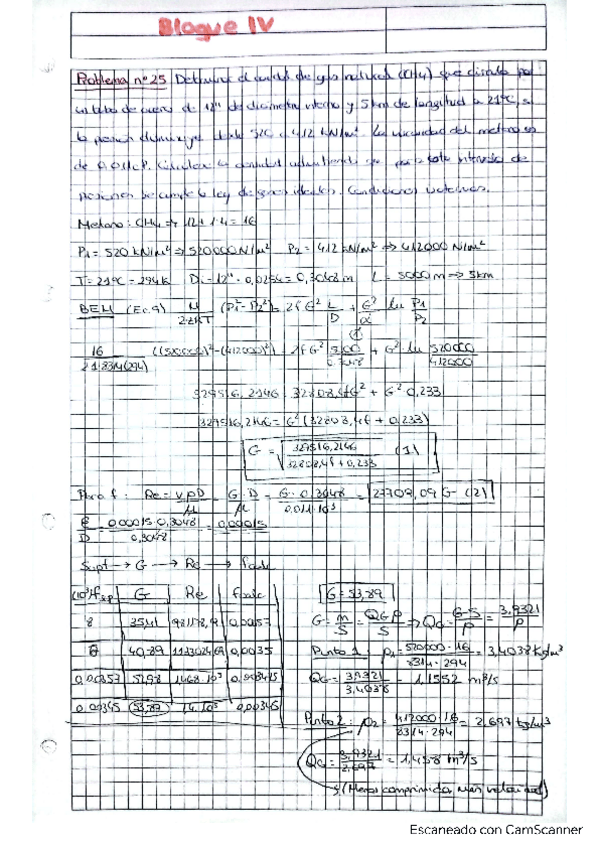 Bloque IV
Problema nº 25 Determinar el caudal de gas natural (CH4) que circula por
un tubo de acero de 12" de diámetro interno y 5 km de longitud a 21ºC, si
la presión disminuye desde 520 a 412 kN/m². La viscosidad del metano es
de 0,011cP. Calcular la densidad para este intervalo de
presiones se cumple la ley de gases ideales. Condiciones
Metano: CH4 => 12+1·4=16
P1 = 520 kN/m² => 520000 N/m² P2 = 412 kN/m² => 412000 N/m²
T = 21ºC = 294K D = 12" · 0,0254 = 0,3048 m L = 5000 m => 5km
BEM (Ec. 9) M/2zRT (P1² - P2²) = 2f G² L/D + G²/α ln P1/P2
16/2·8314(294) ((520000)² - (412000)²) = 2fG² 5000/0,3048 + G² · ln 520000/412000
329516,2146 = 32808,4fG² + G² 0,233
329516,2146 = G² (32808,4f + 0,233)
G = √329516,2146/32808,4f + 0,233 (1)
Para f: Re = v·ρ·D/μ = G·D/μ = G · 0,3048/0,011·10³ = 27709,09 G (2)
ε/D 0,00015·0,3048/0,3048 = 0,00015
Supt → G → Re → fcalc
(10³)fsup G Re fcalc G = 53,89
G = m/S = QG ρ/S => QG = G·S/ρ = 3,9321/ρ
8 35,41 0,0037
40,89 0,0035
Punto 1: ρ1 = 520000·16/8314·294 = 3,4038 kg/m³
0,00357 52,98 1468·10³ 0,003415
QG = 3,9321/3,4038 = 1,1552 m³/s
0,00345 53,89 0,00345
Punto 2: ρ2 = 412000·16/8314·294 = 2,697 kg/m³
QG = 3,9321/2,697 = 1,458 m³/s
(Menos comprimido, más velocidad)
Escaneado con CamScanner